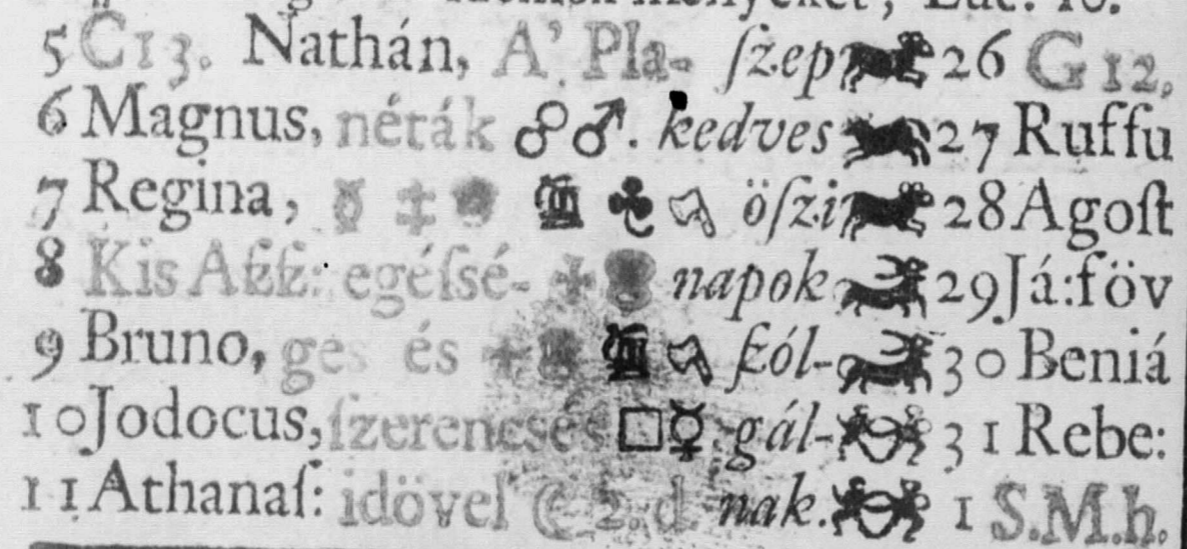 5 C13. Nathán, A' Pla- ſzep 26 G 12.
6 Magnus, néták ☍♂. kedves 27 Ruffu
7 Regina, öſzi 28 Agoſt
8 Kis Aſſz: egéſsé- napok 29 Já:föv
9 Bruno, ges és ſzól- 30 Beniá
10 Jodocus, ſzerencsés □☿ gál- 31 Rebe:
11 Athanaſ: idövel ☾ 2. d. nak. 1 S.M.h.